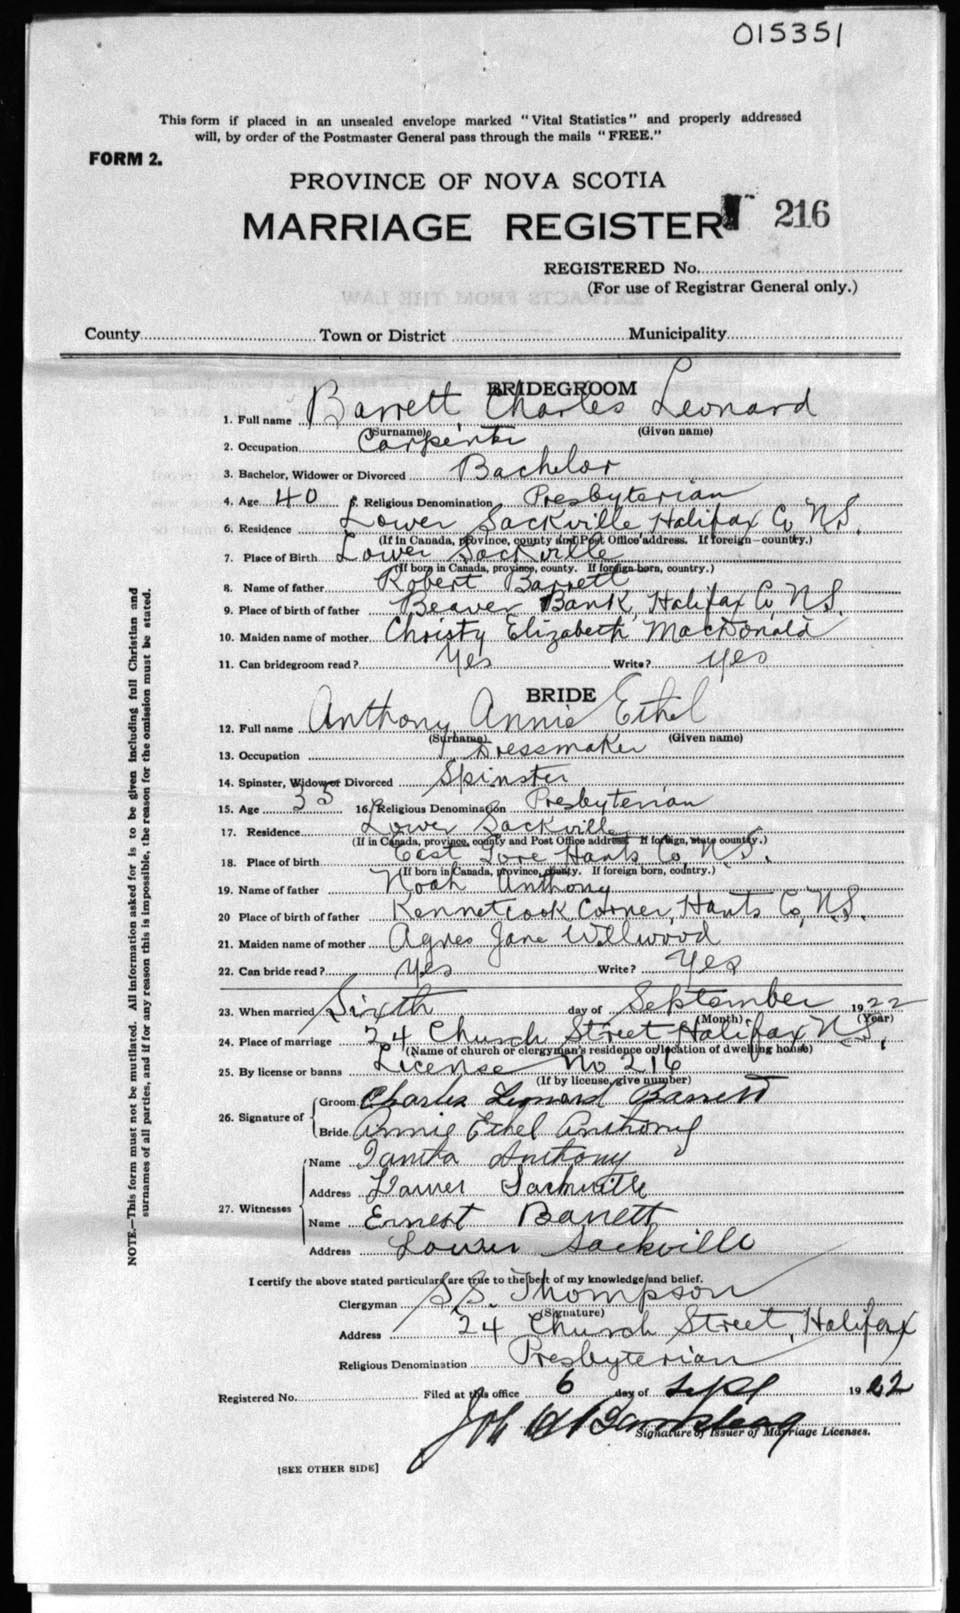 015351
This form if placed in an unsealed envelope marked "Vital Statistics" and properly addressed
will, by order of the Postmaster General pass through the mails "FREE."
FORM 2.
PROVINCE OF NOVA SCOTIA
MARRIAGE REGISTER 216
REGISTERED No.
(For use of Registrar General only.)
County Town or District Municipality
BRIDEGROOM
1. Full name Barrett Charles Leonard
(Surname) (Given name)
2. Occupation Carpenter
3. Bachelor, Widower or Divorced Bachelor
4. Age 40 5. Religious Denomination Presbyterian
6. Residence Lower Sackville Halifax Co N.S.
(If in Canada, province, county and Post Office address. If foreign—country.)
7. Place of Birth Lower Sackville
(If born in Canada, province, county. If foreign born, country.)
8. Name of father Robert Barrett
9. Place of birth of father Beaver Bank, Halifax Co, N.S.
10. Maiden name of mother Christy Elizabeth MacDonald
11. Can bridegroom read? Yes Write? yes
BRIDE
12. Full name Anthony Annie Ethel
(Surname) (Given name)
13. Occupation Dressmaker
14. Spinster, Widow or Divorced Spinster
15. Age 33 16. Religious Denomination Presbyterian
17. Residence Lower Sackville
(If in Canada, province, county and Post Office address. If foreign, state country.)
18. Place of birth East Gore Hants Co, N.S.
(If born in Canada, province, county. If foreign born, country.)
19. Name of father Noah Anthony
20 Place of birth of father Kennetcook Corner, Hants Co, N.S.
21. Maiden name of mother Agnes Jane Wellwood
22. Can bride read? yes Write? Yes
23. When married Sixth day of September 1922
(Month) (Year)
24. Place of marriage 24 Church Street Halifax N.S.
(Name of church or clergyman's residence or location of dwelling house)
25. By license or banns License No 216
(If by license, give number)
26. Signature of Groom Charles Leonard Barrett
Bride Annie Ethel Anthony
27. Witnesses Name Anthony
Address Lower Sackville
Name Ernest Barrett
Address Lower Sackville
I certify the above stated particulars are true to the best of my knowledge and belief.
Clergyman S.S. Thompson
(Signature)
Address 24 Church Street, Halifax
Religious Denomination Presbyterian
Registered No. Filed at this office 6 day of Sept 1922
Signature of Issuer of Marriage Licenses.
[SEE OTHER SIDE]
NOTE.—This form must not be mutilated. All information asked for is to be given including full Christian and
surnames of all parties, and if for any reason this is impossible, the reason for the omission must be stated.